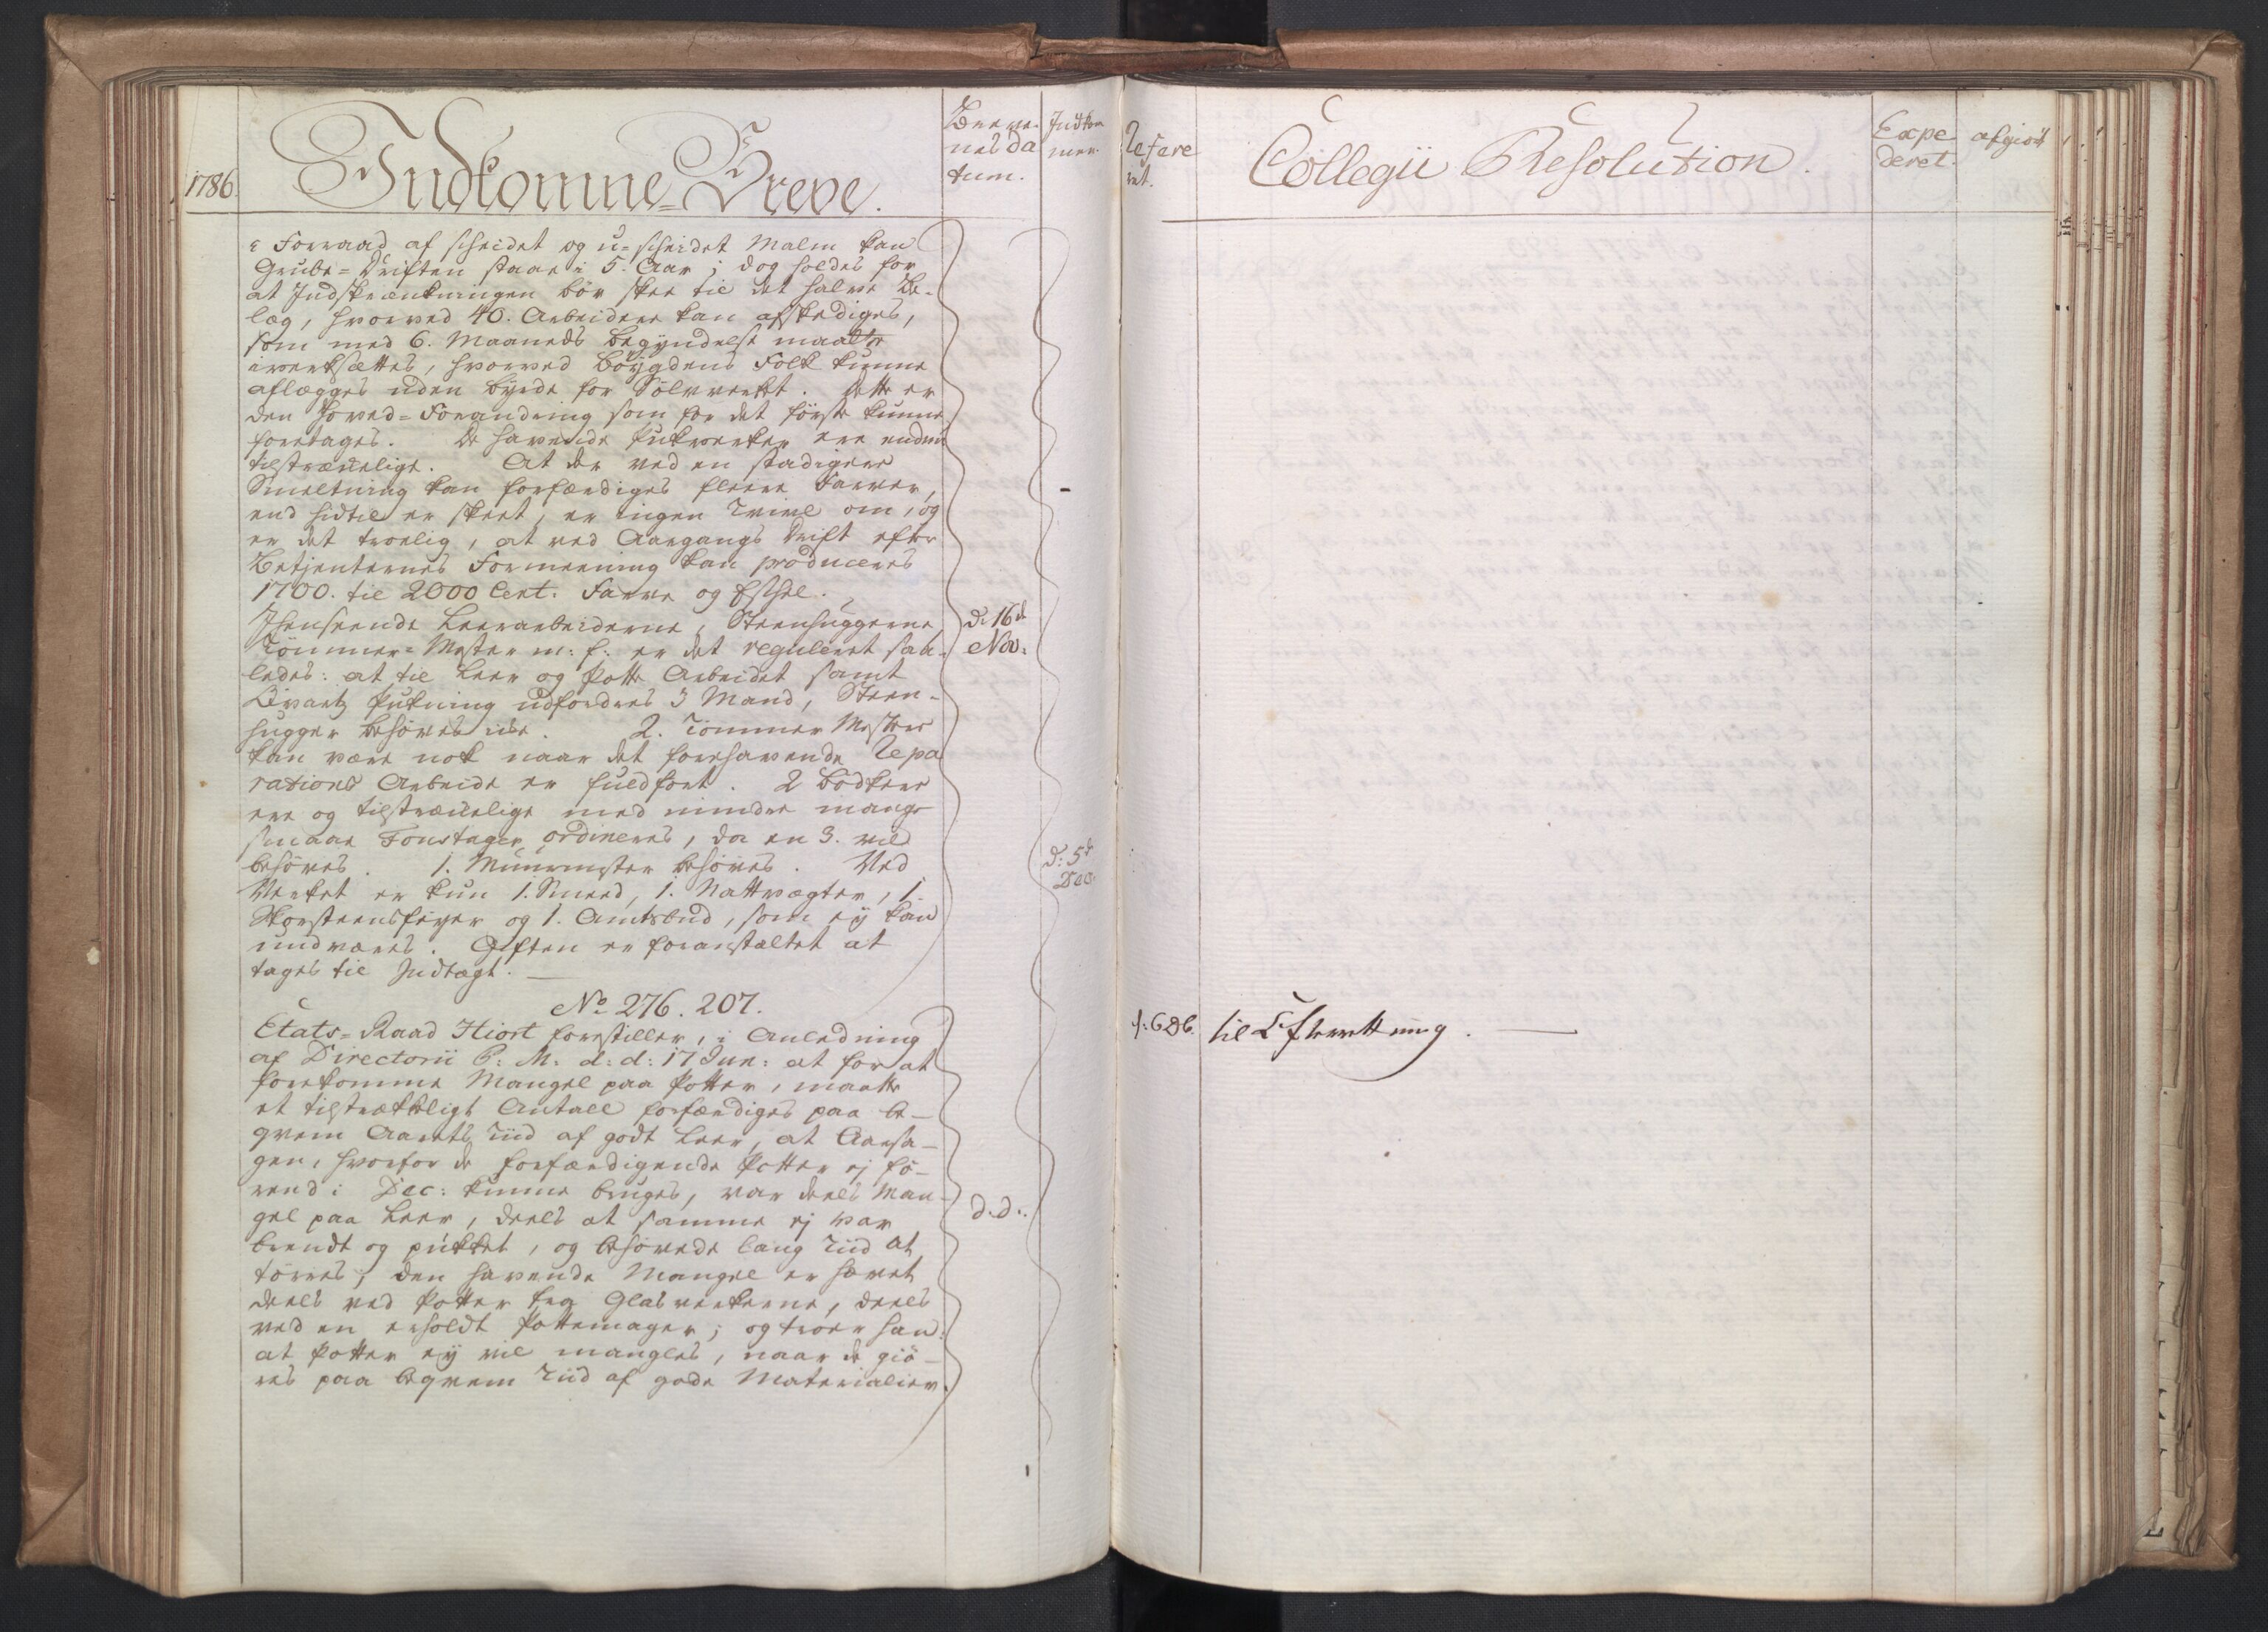 1786.
Indkomne-Breve.
Breve-
nes Da
tum.
Indkom
men.
e Forraad af scheidet og u-scheidet Malm kan
Grube-Driften staae i 5. Aar; dog holdes for
at Indskrænkningen bör skee til det halve Be-
læg, hvorved 40. Arbeidere kan afskediges,
som med 6. Maaneds Begyndelse maatte
iverksættes, hvorved Böygdens Folk kunne
aflægges uden byrde for Sölvverket. Dette er
den Hoved-Forandring som for det förste kunne
foretages. De havende Pukverker ere endnu
tilstrækkelige. At der ved en stadigere
Smeltning kan forfærdiges fleere Farver,
end hidtil er skeet, er ingen Tvivl om, og
er det troelig, at ved Aargangs Drift efter
Betjenternes Formeening kan produceres
1700. til 2000 Cent: Farve og Eschel.
Ihenseende Leerarbeiderne, Steenhuggerne,
Tömmer-Mester m: f: er det reguleret saa-
ledes: at til Leer og Potte Arbeidet samt
Qvartz Pukning udfordres 3 Mand, Steen-
hugger behöves ikke. 2. Tömmer Mestere
kan være nok naar det forehavende Repa
rations Arbeide er fuldfört. 2 Bödkere
ere og tilstrækkelige med mindre mange
smaae Foustager ordineres, da en 3. vil
behöves. 1. Muurmester behöves. Ved
Verket er kun 1. Smed, 1. Nattvægter, 1.
Skorsteensfeyer og 1. Amtsbud, som ey kan
undværes. Giften er foranstaltet at
tages til Indtægt.
d: 16de
Nov:
d: 5te
Dec:
No 276. 207.
Etats-Raad Hiort forestiller, i Anledning
af Directorii P: M: d: d: 17 Jun: at for at
forekomme Mangel paa Potter, maatte
et tilstrækkeligt Antall forfærdiges paa be-
qvem Aarets Tiid af godt Leer, at Aarsa-
gen, hvorfor de forfærdigende Potter ej fö-
rend i Dec: kunne bruges, var deels Man-
gel paa Leer, deels at samme ej var
brendt og pukket, og behövede lang Tiid at
törres; den havende Mangel er hævet
deels ved Potter fra Glasverkerne, deels
ved en erholdt Pottemager; og troer han:
at Potter ey vil mangles, naar de giö-
res paa beqvem Tiid af gode Materialier.
d. d:.
Refere
ret.
Collegii Resolution.
Expe
deret.
afgiort
til Efterretning.